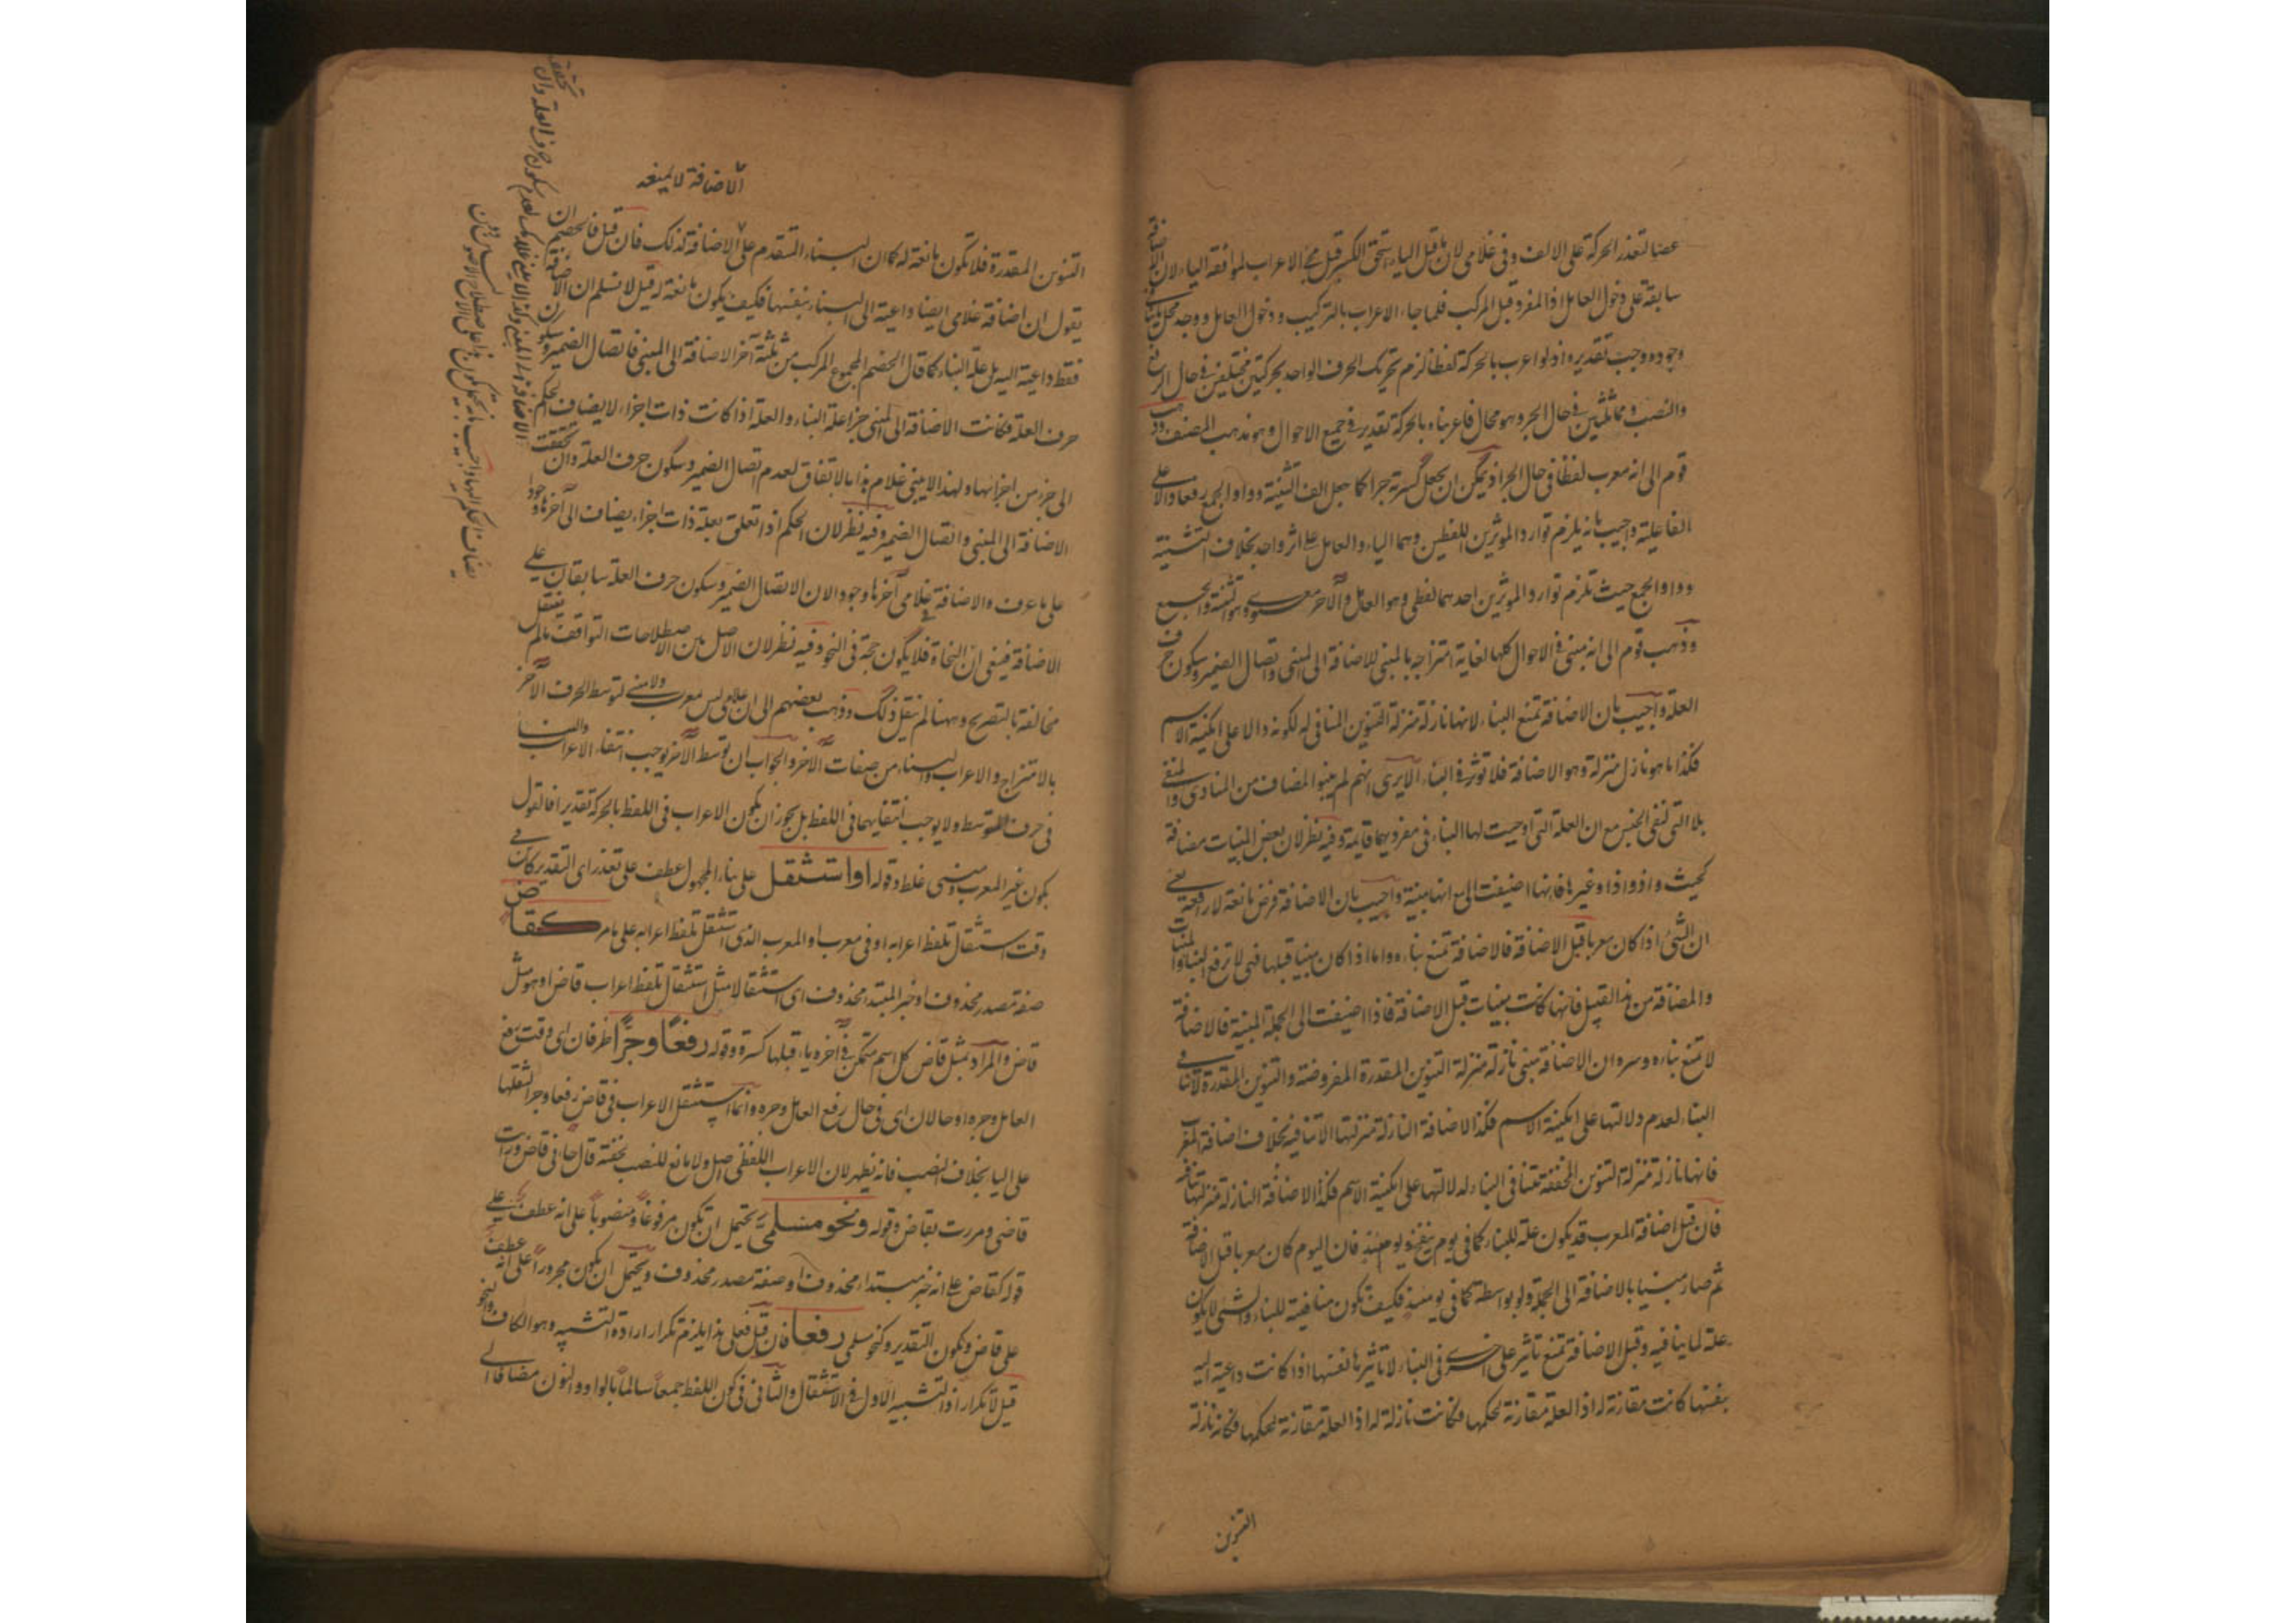 عصا لتعذر الحركة على الالف وفى غلامى لان ما قبل الياء استحق الكسر قبل مجئ الاعراب لموافقة الياء لان الاضافة
سابقة على دخول العامل اذ المفرد قبل المركب فلما جاء الاعراب بالتركيب ودخول العامل ووجد محل
وجوده وجب تقديره اذ لو اعرب بالحركة لفظا لزم تحريك الحرف الواحد بحركتين مختلفتين فى حال الرفع
والنصب ومماثلتين فى حال الجر وهو محال فاعرابه بالحركة تقديرا فى جميع الاحوال وهو مذهب المصنف وذهب
قوم الى انه معرب لفظا فى حال الجر اذ يمكن ان يجعل كسرته جرا كما جعل الف التثنية وواو الجمع رفعا والا على
الفاعلية واجيب بانه يلزم توارد الموثرين اللفظين وهما الياء والعامل على اثر واحد بخلاف التثنية
وواو الجمع حيث تلزم توارد الموثرين احدهما لفظى وهو العامل والآخر معنوى وهو التثنية والجمع
وذهب قوم الى انه مبنى فى الاحوال كلها لغاية امتزاجه بالمبنى للاضافة الى المبنى واتصال الضمير وسكون حرف
العلة واجيب بان الاضافة تمنع البناء لانها نازلة منزلة التنوين المنافى له لكونه دالا على امكنية الاسم
فكذا ما هو نازل منزلة وهو الاضافة فلا توثر فى البناء الا يرى انهم لم يبنوا المضاف من المنادى والمنفى
بلا التى لنفى الجنس مع ان العلة التى اوجبت لها البناء فى مفرديهما قايمة وفيه نظر لان بعض المبنيات مضافة
كحيث واذ واذا وغيرها فانها اضيفت الى مع انها مبنية واجيب بان الاضافة فرض مانعة لا رافعة يعنى
ان الشئ اذا كان معربا قبل الاضافة فالاضافة تمنع بناءه واما اذا كان مبنيا قبلها فهى لا ترفع البناء والمبنيات
والمضافة من هذا القبيل فانها كانت مبنيات قبل الاضافة فاذا اضيفت الى الجملة المبنية فالاضافة
لا تمنع بناءه وسره ان الاضافة مبنى نازلة منزلة التنوين المقدرة المفروضة والتنوين المقدرة لا تنافى
البناء لعدم دلالتها على امكنية الاسم فكذا الاضافة النازلة منزلتها لا تنافيه بخلاف اضافة المعرب
فانها نازلة منزلة التنوين المحققة تنافى البناء لدلالتها على امكنية الاسم فكذا الاضافة النازلة منزلتها تنافيه
فان قيل اضافة المعرب قد يكون علة للبناء كما فى يوم ينفع ويومئذ فان اليوم كان معربا قبل الاضافة
ثم صار مبنيا بالاضافة الى الجملة ولو بواسطة كما فى يومئذ فكيف تكون منافية للبناء والشئ لا يكون
علة لما ينافيه وقيل الاضافة تمنع تاثير على اخرى فى البناء لا تاثيرها نفسها اذا كانت داعية اليه
بنفسها كانت مقارنة له اذ العلة مقارنة لحكمها فكانت نازلة له اذ العلة مقارنة لحكمها فكانه نازلة
التنوين
الاضافة لا يمنعه
التنوين المقدرة فلا تكون مانعة له كما ان البناء المتقدم على الاضافة كذلك فان قيل فالخصم
يقول ان اضافة غلامى ايضا داعية الى البناء بنفسها فكيف يكون مانعة له قيل لا نسلم ان الاضافة
فقط داعية اليه بل علة البناء كما قال الخصم المجموع المركب من ثلثة آخر الاضافة الى المبنى واتصال الضمير وسكون
حرف العلة فكانت الاضافة الى المبنى جزء علة البناء والعلة اذا كانت ذات اجزاء لا يضاف الحكم
الى جزء من اجزائها ولهذا لا يبنى غلام هذا بالاتفاق لعدم اتصال الضمير وسكون حرف العلة وان تحققت
الاضافة الى المبنى واتصال الضمير وفيه نظر لان الحكم اذا تعلق بعلة ذات اجزاء يضاف الى آخرها وجودا
على ما عرف والاضافة فى غلامى آخرها وجودا لان الاتصال الضمير وسكون حرف العلة سابقان على
الاضافة فينبغى ان النحاة فلا يكون حجة فى النحو وفيه نظر لان الاصل بين الاصطلاحات التوافق ما لم ينتقل
مخالفة بالتصريح وههنا لم ينتقل ذلك وذهب بعضهم الى ان غلامى ليس معرب ولا مبنى لتوسط الحرف الآخر
بالامتزاج والاعراب والبناء من صفات الآخر والجواب ان توسط الآخر يوجب انتفاء الاعراب والبناء
فى حرف المتوسط ولا يوجب انتفايهما فى اللفظ بل يجوز ان يكون الاعراب فى اللفظ بالحركة تقديرا فالقول
بكون غير المعرب ومبنى غلط وقوله او استثقل على بناء المجهول عطف على تعذر اى التقدير كائن فى
وقت استثقال تلفظ اعرابه او فى معرب او المعرب الذى استثقل تلفظ اعرابه على ما مر كقاض
صفة مصدر محذوف او خبر المبتدا محذوف اى استثقالا مثل استثقال تلفظ اعراب قاض او هو مثل
قاض والمراد بمثل قاض كل اسم متمكن فى آخره ياء قبلها كسرة وقوله رفعا وجرا ظرفان اى وقت رفع
العامل وجره او حالان اى فى حال رفع العامل وجره وانما استثقل الاعراب فى قاض رفعا وجرا لثقلها
على الياء بخلاف النصب فانه يظهر لان الاعراب اللفظى اصل ولا مانع للنصب بخفته قال جاءنى قاض ورايت
قاضى ومررت بقاض وقوله ونحو مسلمى يحتمل ان تكون مرفوعا ومنصوبا على انه عطف على
قوله كقاض على انه خبر مبتداء محذوف او صفة مصدر محذوف ويحتمل ان يكون مجرورا على انه عطف
على قاض وتكون التقدير وكنحو مسلمى رفعا فان قيل فعلى هذا يلزم تكرار ارادة التشبيه وهو الكاف والنحو
قيل لا تكرار اذ التشبيه الاول فى الاستثقال والثانى فى كون اللفظ جمعا سالما بالواو والنون مضافا الى